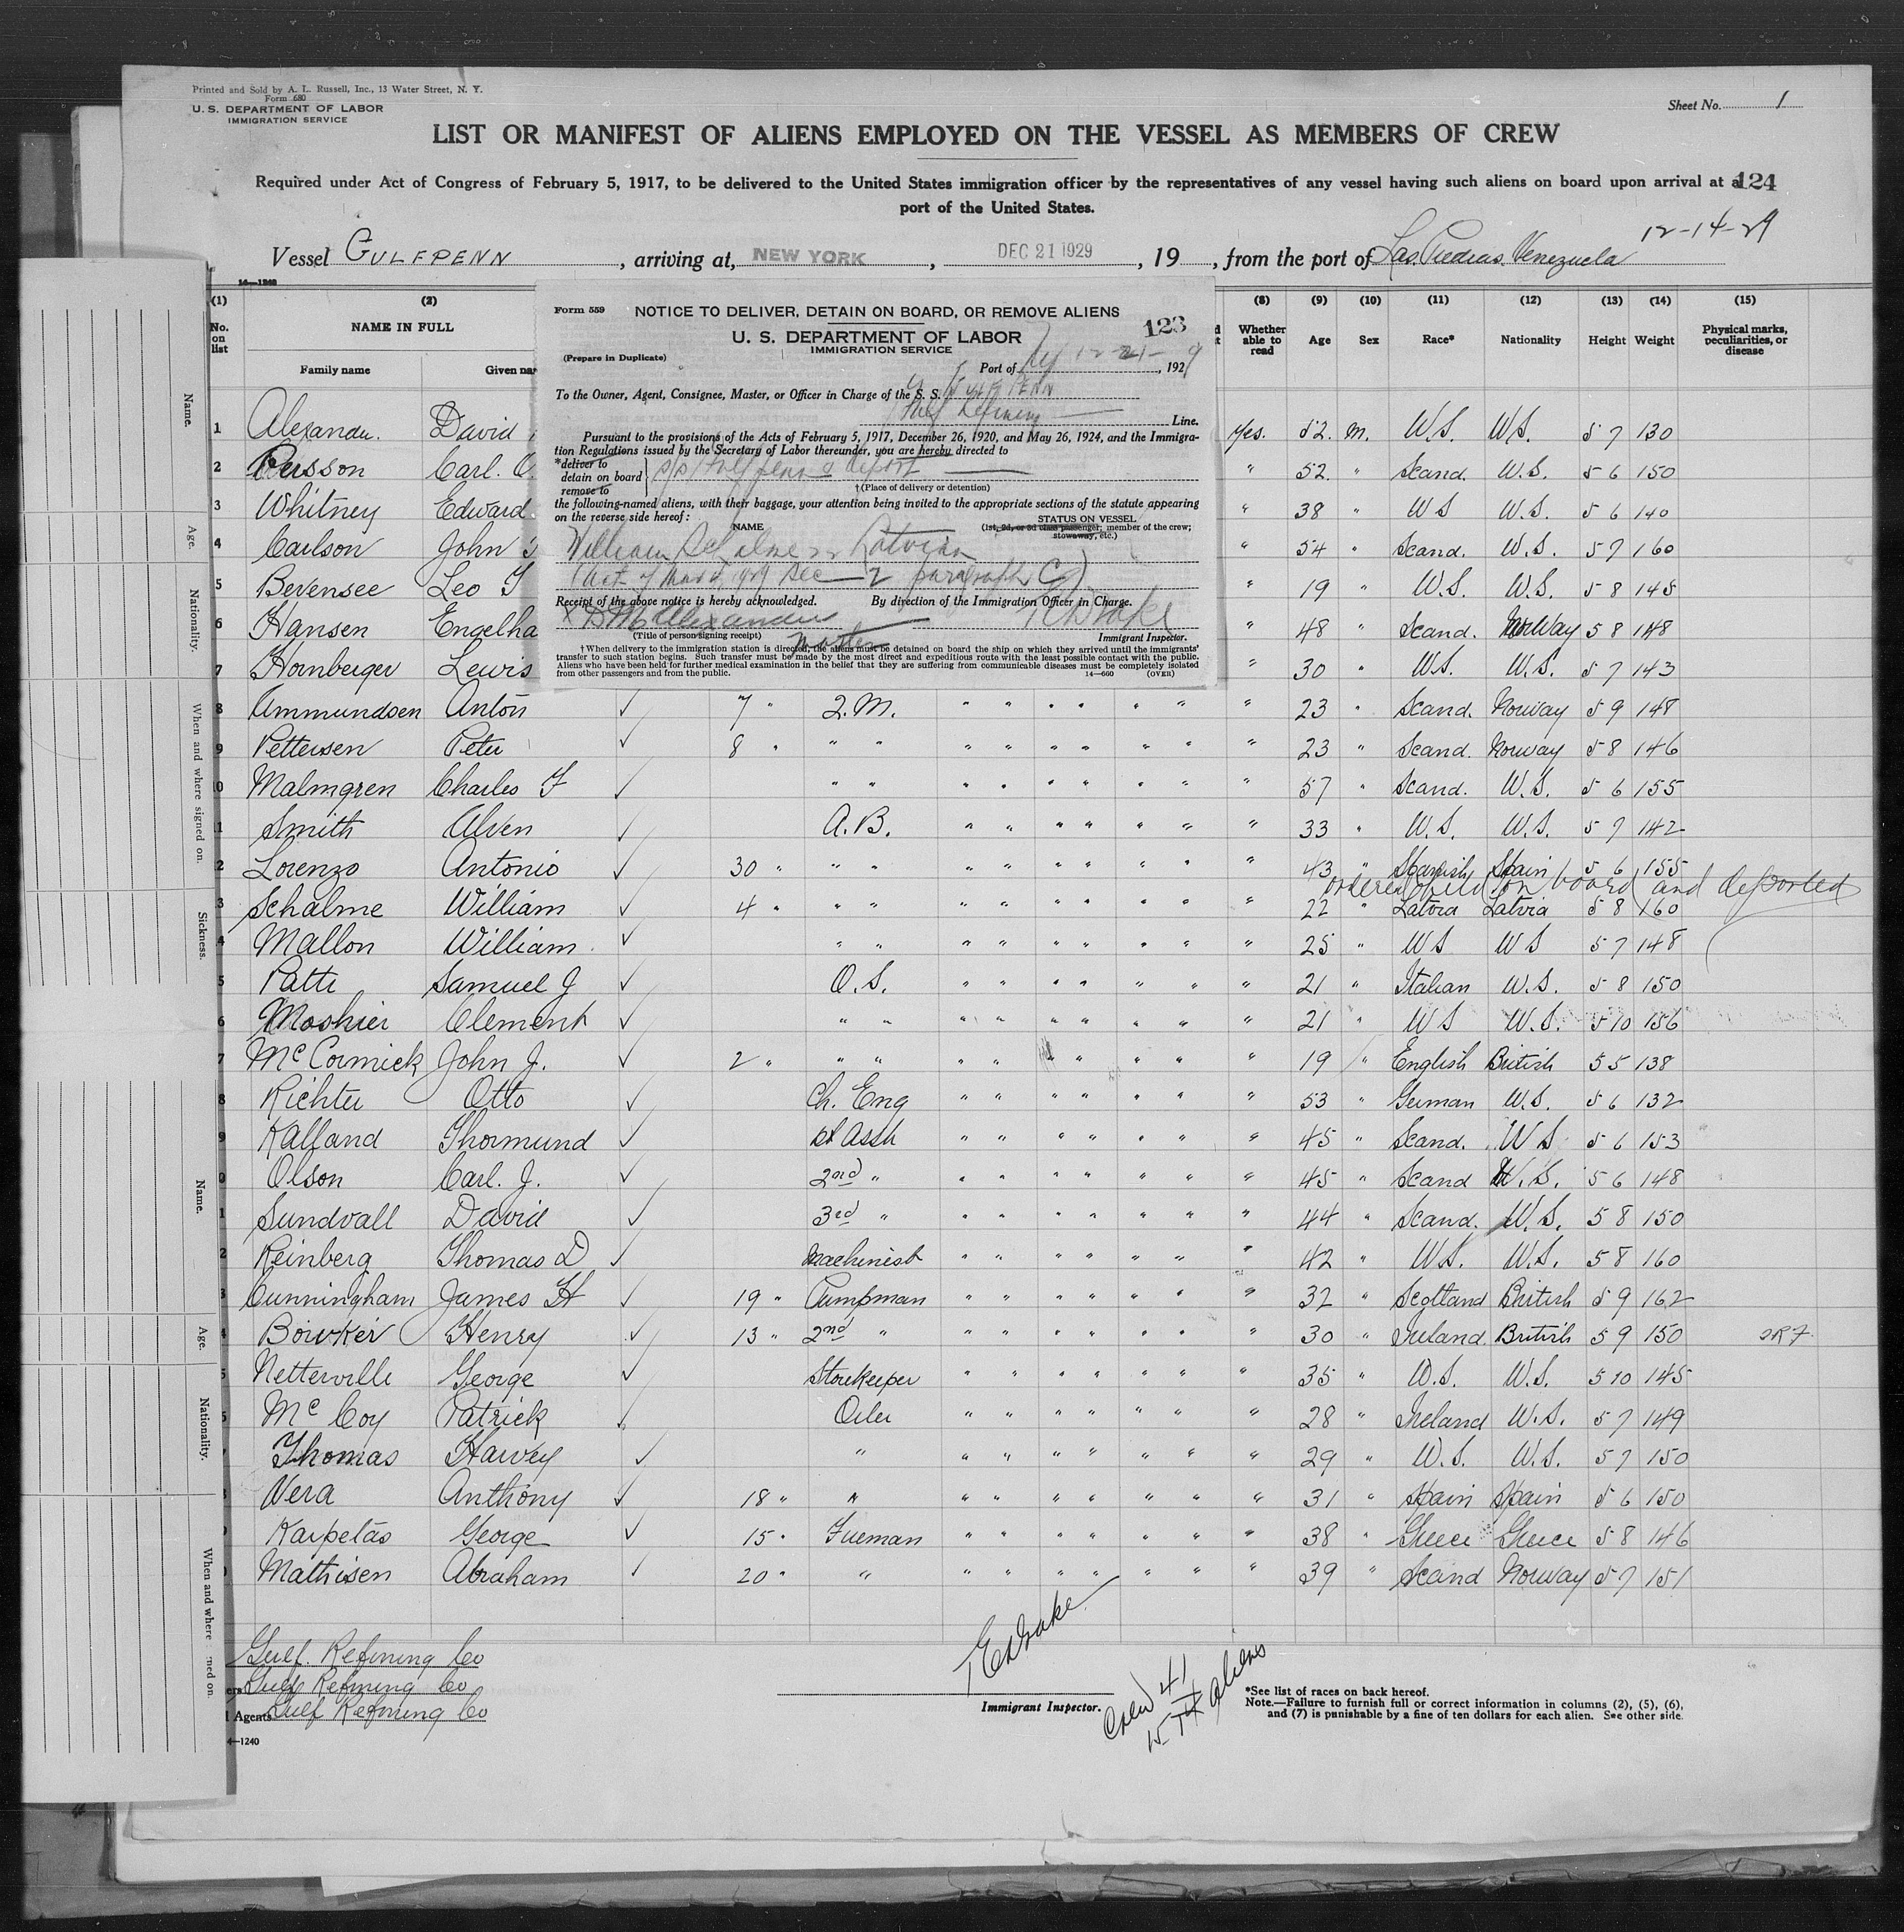 Printed and Sold by A. L. Russell, Inc., 13 Water Street, N. Y.
Form 680
U. S. DEPARTMENT OF LABOR
IMMIGRATION SERVICE
Sheet No. 1
LIST OR MANIFEST OF ALIENS EMPLOYED ON THE VESSEL AS MEMBERS OF CREW
Required under Act of Congress of February 5, 1917, to be delivered to the United States immigration officer by the representatives of any vessel having such aliens on board upon arrival at a 124
port of the United States.
12-14-29
Vessel GULFPENN, arriving at, NEW YORK, DEC 21 1929, 19, from the port of Las Piedras Venezuela
(1) (2) (8) (9) (10) (11) (12) (13) (14) (15)
No. on list NAME IN FULL Whether able to read Age Sex Race* Nationality Height Weight Physical marks, peculiarities, or disease
Family name Given
Form 559 NOTICE TO DELIVER, DETAIN ON BOARD, OR REMOVE ALIENS
U. S. DEPARTMENT OF LABOR 123
IMMIGRATION SERVICE
(Prepare in Duplicate)
Port of NY 12-21-, 1929
To the Owner, Agent, Consignee, Master, or Officer in Charge of the S. S. Gulf PENN
Gulf Refining Line.
Pursuant to the provisions of the Acts of February 5, 1917, December 26, 1920, and May 26, 1924, and the Immigra-
tion Regulations issued by the Secretary of Labor thereunder, you are hereby directed to
*deliver to
detain on board s/s Gulfpenn & deport
remove to †(Place of delivery or detention)
the following-named aliens, with their baggage, your attention being invited to the appropriate sections of the statute appearing
on the reverse side hereof:
NAME STATUS ON VESSEL
(1st, 2d, or 3d class passenger; member of the crew; stowaway, etc.)
William Schalme Latvian
(Act of 1929 Sec 2 paragraph C)
Receipt of the above notice is hereby acknowledged. By direction of the Immigration Officer in Charge.
X D M Alexander TE Drake
(Title of person signing receipt) master Immigrant Inspector.
†When delivery to the immigration station is directed, the aliens must be detained on board the ship on which they arrived until the immigrants'
transfer to such station begins. Such transfer must be made by the most direct and expeditious route with the least possible contact with the public.
Aliens who have been held for further medical examination in the belief that they are suffering from communicable diseases must be completely isolated
from other passengers and from the public. 14—660 (OVER)
1 Alexander. David Yes. 52. M. U.S. U.S. 5 7 130
2 Persson Carl. " 52. " Scand. U.S. 5 6 150
3 Whitney Edward " 38 " U S U.S. 5 6 140
4 Carlson John " 54 " Scand. U.S. 5 7 160
5 Bevensee Leo " 19 " U.S. U.S. 5 8 145
6 Hansen Engelha " 48 " Scand. Norway 5 8 148
7 Hornberger Lewis " 30 " U.S. U.S. 5 7 143
8 Ammundsen Anton ✓ 7 " Q.M. " " " " " " " 23 " Scand. Norway 5 9 148
9 Pettersen Peter ✓ 8 " " " " " " " " " " 23 " Scand. Norway 5 8 146
0 Malmgren Charles F ✓ " " " " " " " " " 57 " Scand. U.S. 5 6 155
1 Smith Alven ✓ A.B. " " " " " " " 33 " U.S. U.S. 5 7 142
2 Lorenzo Antonio ✓ 30 " " " " " " " " " " 43 " Spanish Spain 5 6 155
ordered held on board and deported
3 Schalme William ✓ 4 " " " " " " " " " " 22 " Latvia Latvia 5 8 160
4 Mallon William ✓ " " " " " " " " " 25 " U S U S 5 7 148
5 Patti Samuel J ✓ O.S. " " " " " " " 21 " Italian U.S. 5 8 150
6 Moshier Clement ✓ " " " " " " " " " 21 " U S U.S. 5 10 156
7 McCormick John J. ✓ 2 " " " " " " " " " " 19 " English British 5 5 138
8 Richter Otto ✓ Ch. Eng " " " " " " " 53 " German U.S. 5 6 132
9 Kalland Thormund ✓ 1st Asst " " " " " " " 45 " Scand. U S 5 6 153
0 Olson Carl. J. ✓ 2nd " " " " " " " " 45 " Scand U.S. 5 6 148
1 Sundvall David ✓ 3rd " " " " " " " " 44 " Scand. U.S. 5 8 150
2 Reinberg Thomas D ✓ Machinist " " " " " " " 42 " U.S. U.S. 5 8 160
3 Cunningham James H ✓ 19 " Pumpman " " " " " " " 32 " Scotland British 5 9 162
4 Bowker Henry ✓ 13 " 2nd " " " " " " " " 30 " Ireland. British 5 9 150
5 Netterville George ✓ Storekeeper " " " " " " " 35 " U.S. U.S. 5 10 145
6 McCoy Patrick ✓ Oiler " " " " " " " 28 " Ireland U.S. 5 7 149
Thomas Harvey ✓ " " " " " " " " 29 " U.S. U.S. 5 7 150
Vera Anthony ✓ 18 " " " " " " " " " 31 " Spain Spain 5 6 150
Karpetas George ✓ 15 " Fireman " " " " " " " 38 " Greece Greece 5 8 146
Mathisen Abraham ✓ 20 " " " " " " " " " 39 " Scand Norway 5 7 151
Gulf Refining Co
Gulf Refining Co
Agents Gulf Refining Co
4—1240
TE Drake
Immigrant Inspector.
Crew 41
aliens
*See list of races on back hereof.
Note.—Failure to furnish full or correct information in columns (2), (5), (6),
and (7) is punishable by a fine of ten dollars for each alien. See other side.
Name.
Age.
Nationality.
When and where signed on.
Sickness.
Name.
Age.
Nationality.
When and where
ned on.